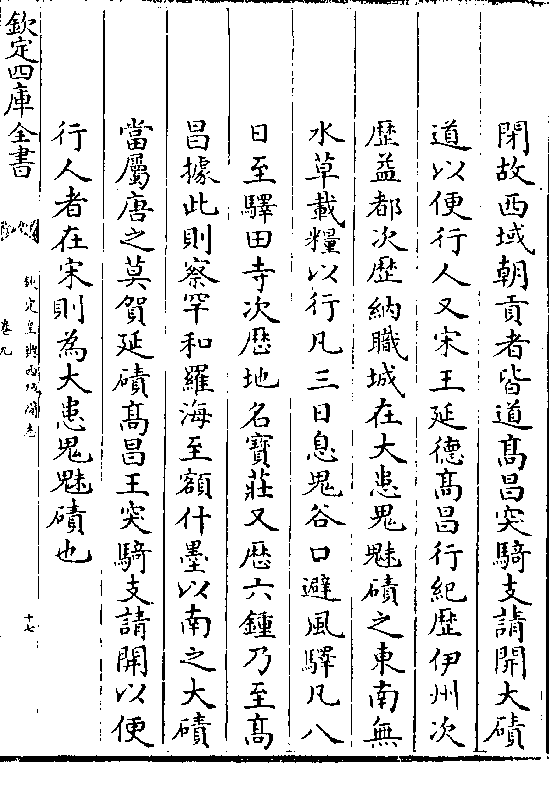 閉故西域朝貢者皆道髙昌突騎支請開大磧
道以便行人又宋王延德髙昌行紀歴伊州次
歴益都次歴納職城在大患鬼魅磧之東南無
水草載糧以行凡三日息鬼谷口避風驛凡八
日至驛田寺次歴地名寶莊又歴六鍾乃至髙
昌據此則察罕和羅海至額什墨以南之大磧
當屬唐之莫賀延磧髙昌王突騎支請開以便
行人者在宋則為大患鬼魅磧也
欽定四庫全書
欽定皇輿西域圖志
卷九
十七